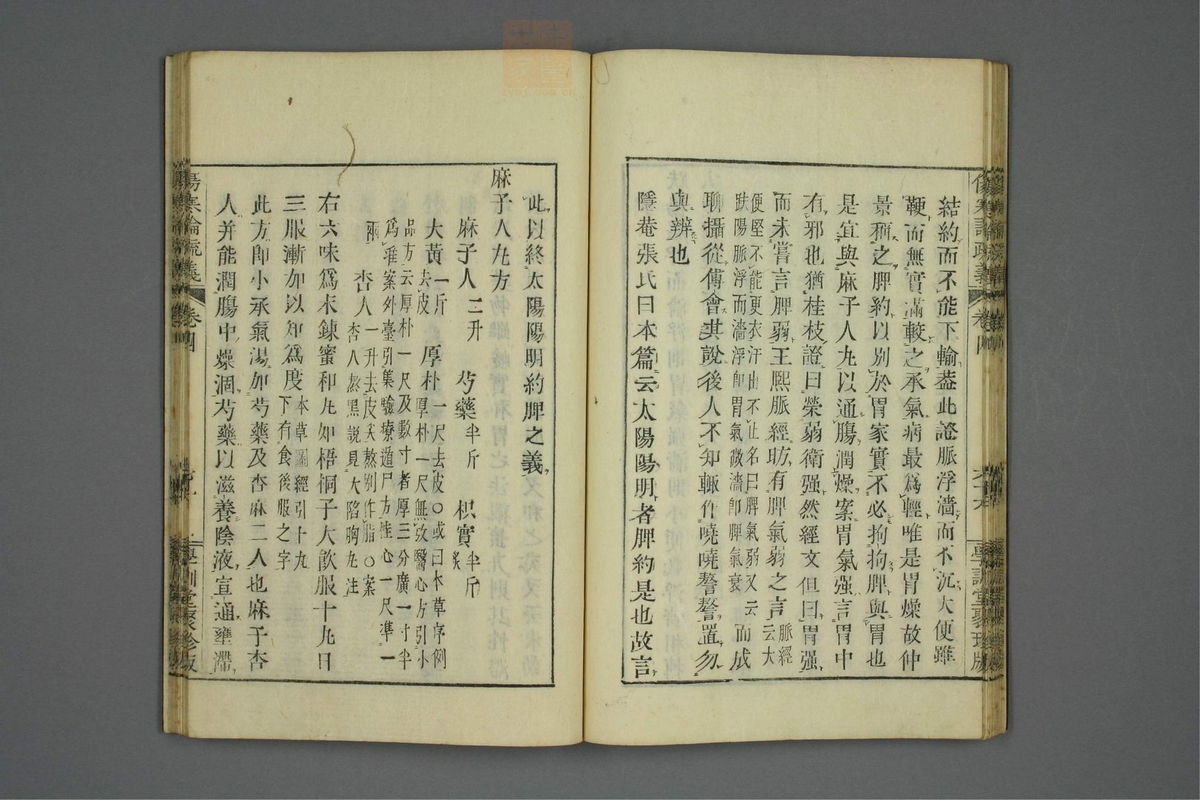 結約而不能下輸葢此證脈浮濇而不沉大便雖
鞕而無實滿較之承氣病最爲輕唯是胃燥故仲
景稱之脾約以別於胃家實不必拘拘脾與胃也
是宜與麻子人丸以通腸潤燥案胃氣强言胃中
有邪也猶桂枝證曰榮弱衛强然經文但曰胃强
而未嘗言脾弱王熙脈經昉有脾氣弱之言脈經云大
便堅不能更衣汗出不止名曰脾氣弱又云
趺陽脈浮而濇浮卽胃氣微濇卽脾氣衰而成
聊攝從傅會其說後人不知輒作嘵嘵謷謷置勿
與辨也
隱菴張氏曰本篇云太陽陽明者脾約是也故言
傷寒論疏義
卷四
學訓堂聚珍版
此以終太陽陽明約脾之義
麻子人丸方
麻子人二升 芍藥半斤 枳實半斤炙
大黃一斤去皮 厚朴一尺去皮○或曰本草序例
厚朴一尺無攷醫心方引小
品方云厚朴一尺及數寸者厚三分廣一寸半
爲准案外臺引集驗療遁尸方桂心一尺準一
兩 杏人一升去皮尖熬別作脂○案
杏人熬黑說見大陷胸丸注
右六味爲末鍊蜜和丸如梧桐子大飮服十丸日
三服漸加以知爲度本草圖經引十丸
下有食後服之字
此方卽小承氣湯加芍藥及杏麻二人也麻子杏
人并能潤腸中燥涸芍藥以滋養陰液宣通壅滯
傷寒論疏義
卷四
學訓堂聚珍版